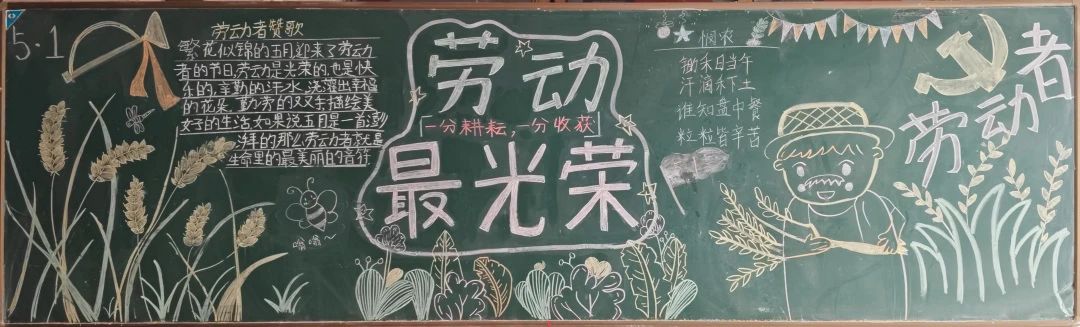 5·1
劳动者赞歌
繁花似锦的五月迎来了劳动
者的节日,劳动是光荣的,也是快
乐的,辛勤的汗水,浇灌出幸福
的花朵,勤劳的双手描绘美
好的生活,如果说五月是一首澎
湃的那么劳动者就是
生命里的最美丽的音符
劳动
一分耕耘,一分收获
最光荣
嗡嗡~
悯农
锄禾日当午
汗滴禾下土
谁知盘中餐
粒粒皆辛苦
劳动者